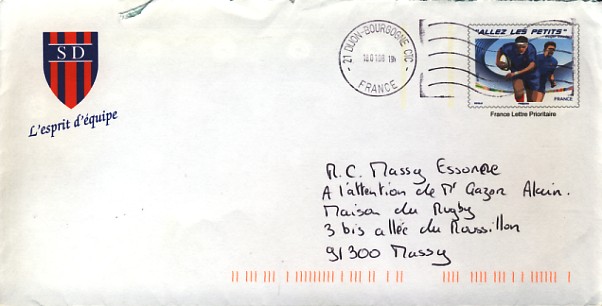 S D
L'esprit d'équipe
21 DIJON-BOURGOGNE CIC
FRANCE
"ALLEZ LES PETITS"
FRANCE
France Lettre Prioritaire
R.C. Massy Essonne
A l'attention de Mr Gazon Alain.
Maison du Rugby
3 bis allée du Roussillon
91300 Massy